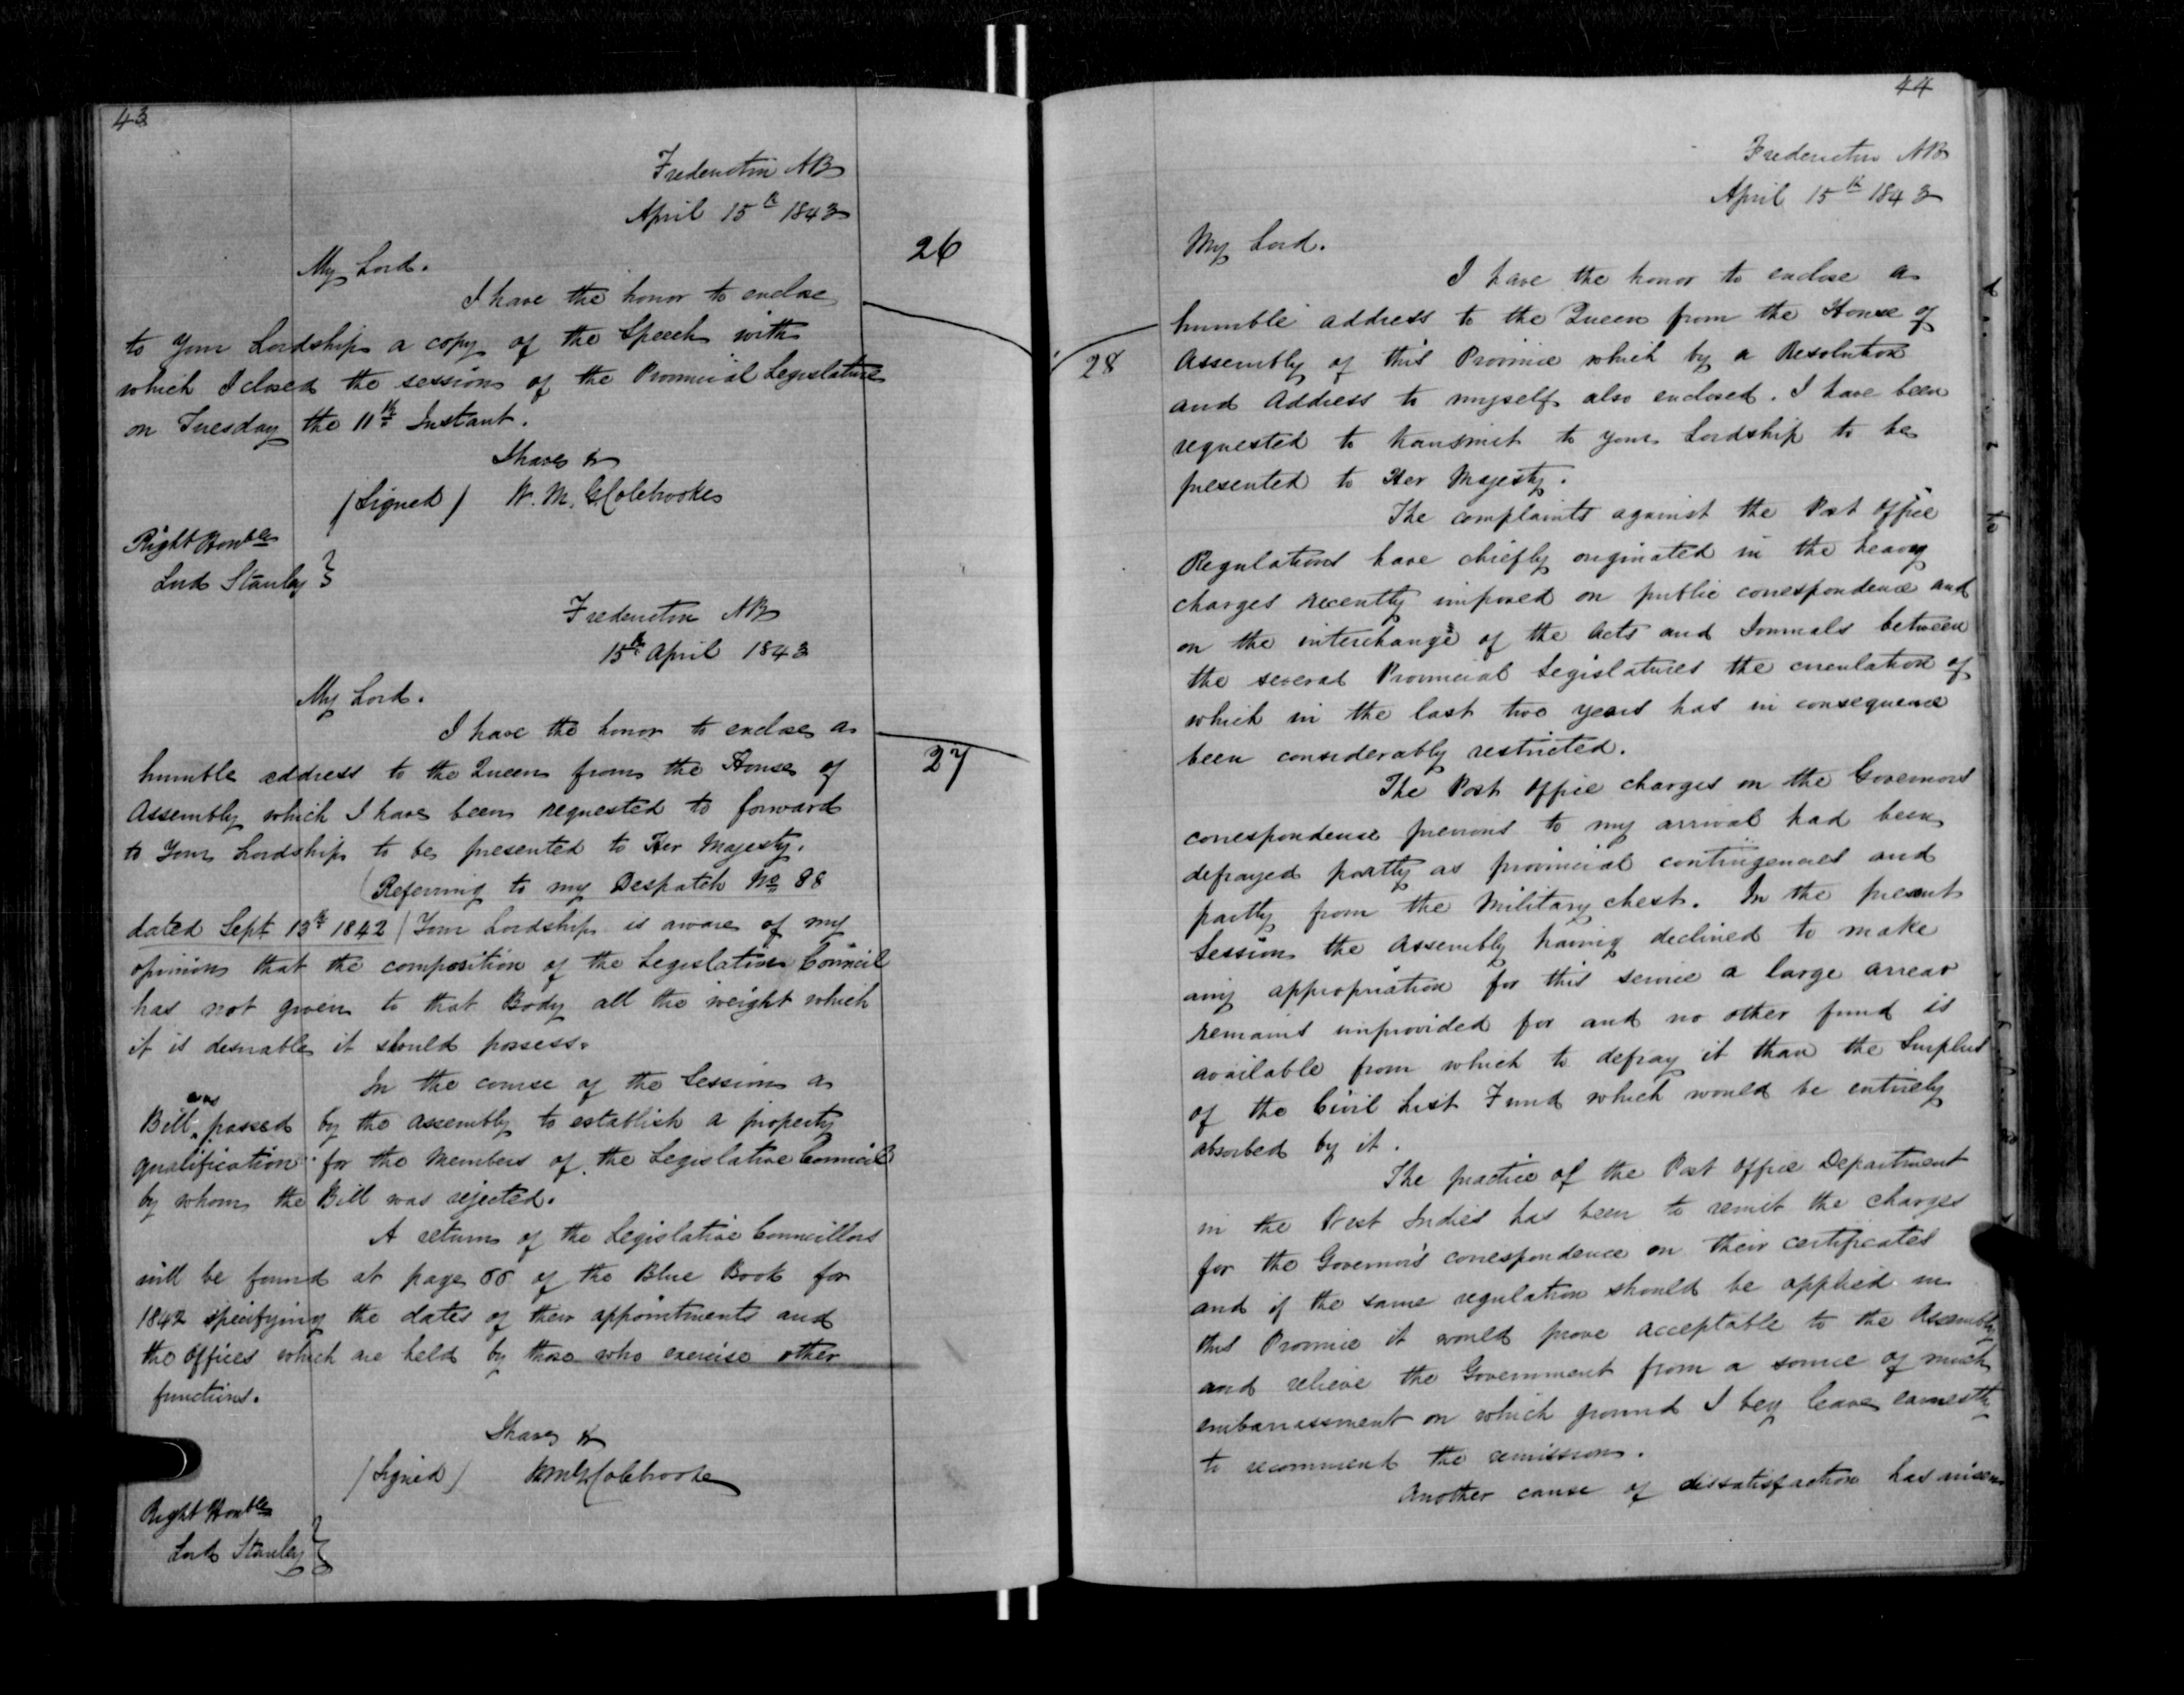 43
Fredericton NB
April 15th 1843
26
My Lord.
I have the honor to enclose
to Your Lordship a copy of the Speech with
which I closed the session of the Provincial Legislature
on Tuesday the 11th Instant.
I have &
(Signed) W. M. G Colebrooke
Right Honble
Lord Stanley
Fredericton NB
15th April 1843
My Lord.
27
I have the honor to enclose a
humble address to the Queen from the House of
Assembly which I have been requested to forward
to Your Lordship to be presented to Her Majesty.
(Referring to my Despatch No 88
dated Sept 13th 1842) Your Lordship is aware of my
opinion that the composition of the Legislative Council
has not given to that Body all the weight which
it is desirable it should possess.
In the course of the Session a
Bill was passed by the Assembly to establish a property
qualification for the Members of the Legislative Council
by whom the Bill was rejected.
A return of the Legislative Councillors
will be found at page 66 of the Blue Book for
1842 specifying the dates of their appointments and
the offices which are held by those who exercise other
functions.
I have &
(Signed) WMG Colebrooke
Right Honble
Lord Stanley
44
Fredericton NB
April 15th 1843
My Lord.
28
I have the honor to enclose a
humble address to the Queen from the House of
Assembly of this Province which by a Resolution
and Address to myself also enclosed. I have been
requested to transmit to your Lordship to be
presented to Her Majesty.
The complaints against the Post Office
Regulations have chiefly originated in the heavy
charges recently imposed on public correspondence and
on the interchange of the Acts and Journals between
the several Provincial Legislatures the circulation of
which in the last two years has in consequence
been considerably restricted.
The Post Office charges on the Governors
correspondence previous to my arrival had been
defrayed partly as provincial contingencies and
partly from the Military chest. In the present
Session the Assembly having declined to make
any appropriation for this service a large arrear
remains unprovided for and no other fund is
available from which to defray it than the Surplus
of the Civil List Fund which would be entirely
absorbed by it.
The practice of the Post Office Department
in the West Indies has been to remit the charges
for the Governor's correspondence on their certificates
and if the same regulation should be applied in
this Province it would prove acceptable to the Assembly
and relieve the Government from a source of much
embarrassment on which ground I beg leave earnestly
to recommend the remission.
Another cause of dissatisfaction has arisen